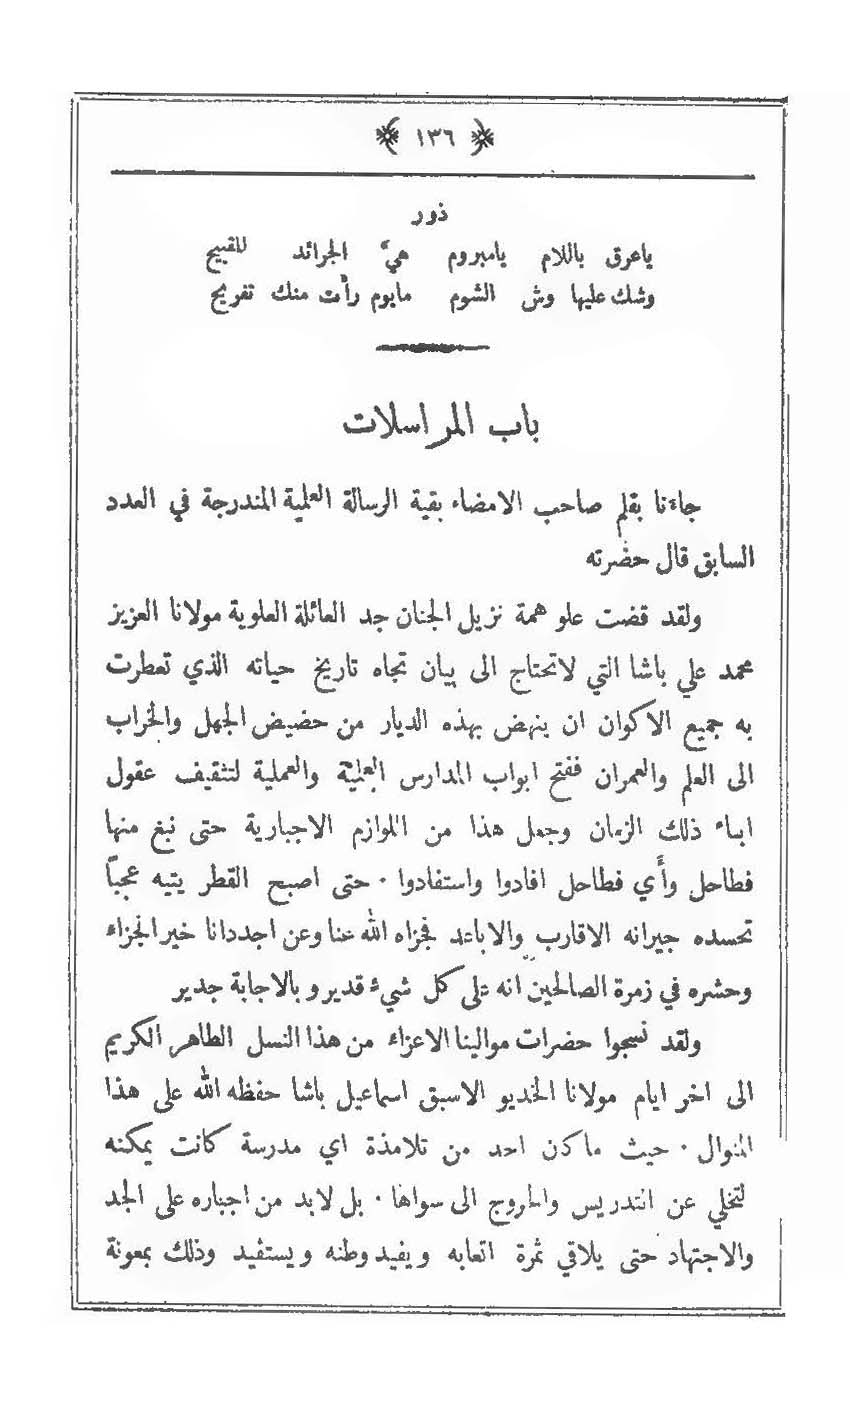 ﴿ ١٣٦ ﴾
ذور
ياعرق باللام يامبروم هيَ الجرائد للقبيح
وشك عليها وش الشوم مايوم رأت منك تفريح
باب المراسلات
جاءنا بقلم صاحب الامضاء بقية الرسالة العلمية المندرجة في العدد
السابق قال حضرته
ولقد قضت علو همة نزيل الجنان جد العائلة العلوية مولانا العزيز
محمد علي باشا التي لاتحتاج الى بيان تجاه تاريخ حياته الذي تعطرت
به جميع الاكوان ان ينهض بهذه الديار من حضيض الجهل والخراب
الى العلم والعمران ففتح ابواب المدارس العلمية والعملية لتثقيف عقول
ابناء ذلك الزمان وجعل هذا من اللوازم الاجبارية حتى نبغ منها
فطاحل وأي فطاحل افادوا واستفادوا · حتى اصبح القطر يتيه عجباً
تحسده جيرانه الاقارب والاباعد فجزاه الله عنا وعن اجددانا خير الجزاء
وحشره في زمرة الصالحين انه على كل شيء قدير وبالاجابة جدير
ولقد نسجوا حضرات موالينا الاعزاء من هذا النسل الطاهر الكريم
الى اخر ايام مولانا الخديو الاسبق اسماعيل باشا حفظه الله على هذا
المنوال · حيث ماكان احد من تلامذة اي مدرسة كانت يمكنه
لتخلي عن التدريس والخروج الى سواها · بل لابد من اجباره على الجد
والاجتهاد حتى يلاقي ثمرة اتعابه ويفيد وطنه ويستفيد وذلك بمعونة